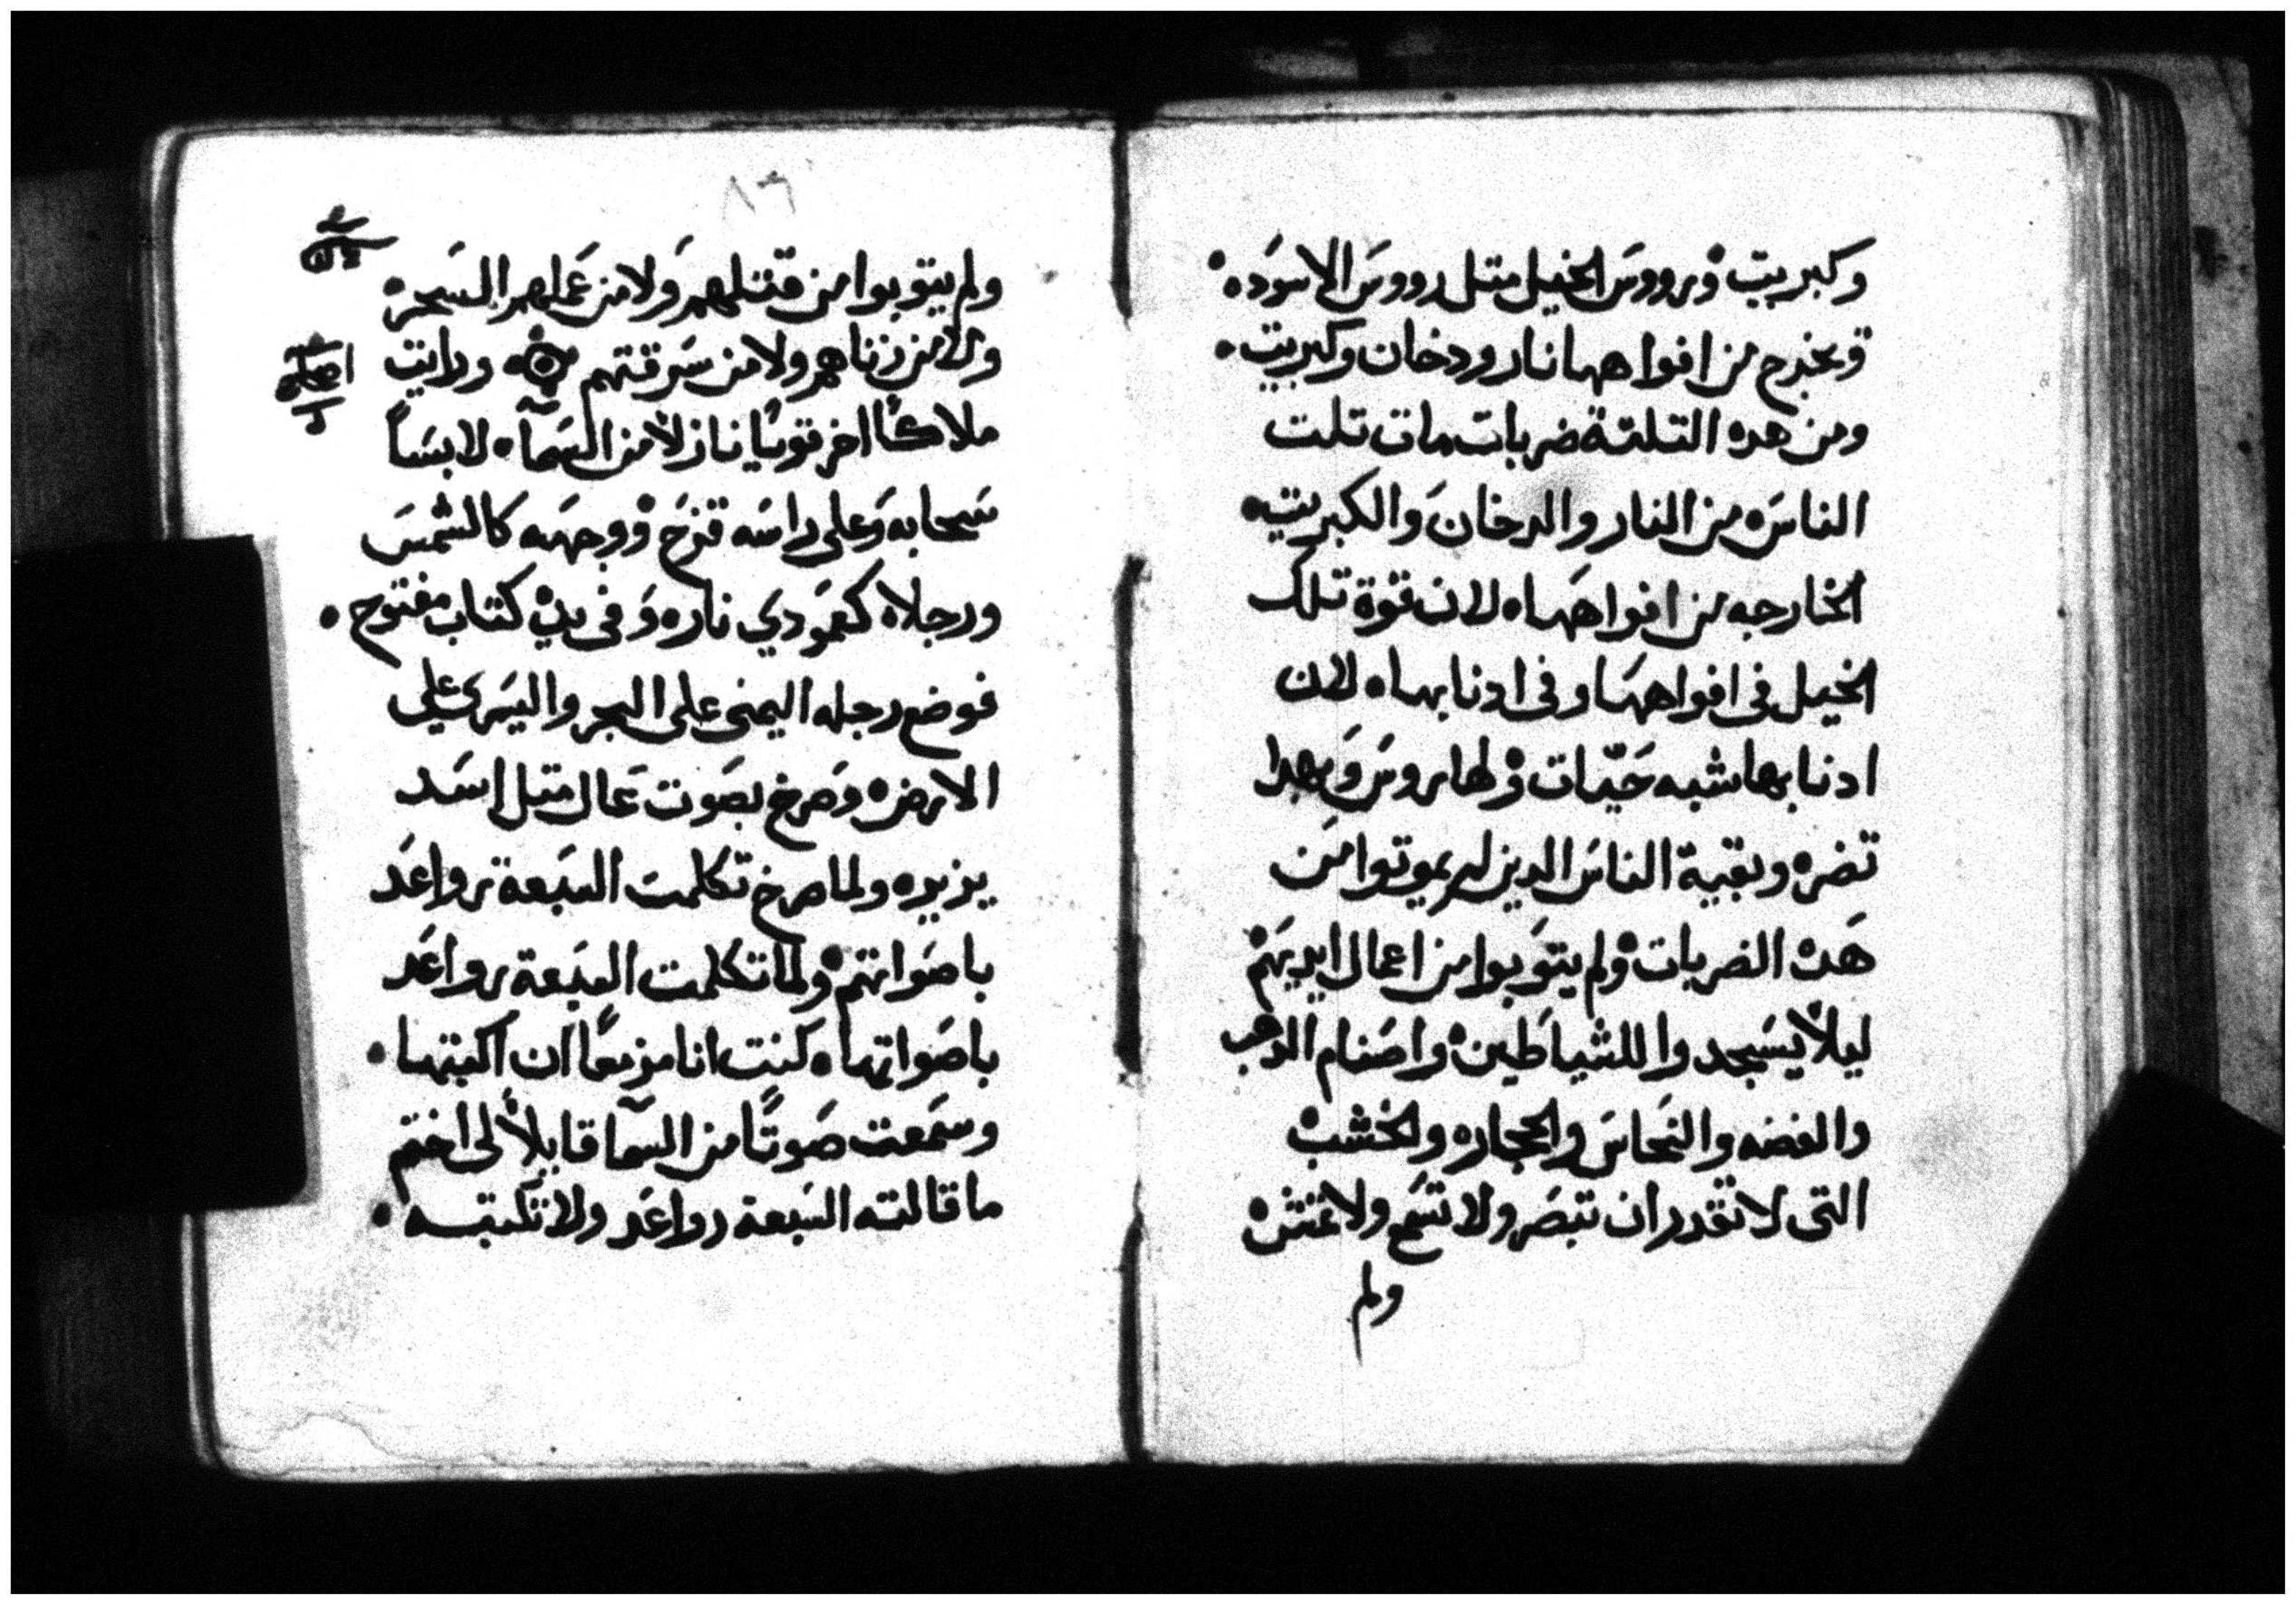 وكبريت ورووس الخيل متل رووس الاسود
ويخرج من افواهها نار ودخان وكبريت
ومن هده التلتة ضربات مات تلت
الناس من النار والدخان والكبريت
الخارجه من افواهها لان قوة تلك
الخيل فى افواهها وفى ادنابها لان
ادنابها شبه حيّات ولها روس وبهدا
تضر وبقية الناس الدين لم يموتوا من
هده الضربات ولم يتوبوا من اعمال ايديهم
ليلا يسجدوا للشياطين واصنام الدهب
والفضه والنحاس والحجاره والخشب
التى لا تقدر ان تبصر ولا تسمع ولا تمش
ولم
٨٦
ولم يتوبوا من قتلهم ولا من عملهم السحر
ولا من زناهم ولا من سرقتهم ورايت
ملاكًا اخر قويًا نازلاً من السمآ لابسًا
سحابه وعلى راسه قزح ووجهه كالشمس
ورجلاه كعمودي نار وفى يده كتاب مفتوح
فوضع رجله اليمنى على البحر واليسرى على
الارض وصرخ بصوت عال متل اسد
يزير ولما صرخ تكلمت السبعة رواعد
باصواتهم ولما تكلمت السبعة رواعد
باصواتها كنت انا مزمعًا ان اكبتها
وسمعت صوتًا من السمآ قايلاً لى اختم
ما قالته السبعة رواعد ولا تكتبه